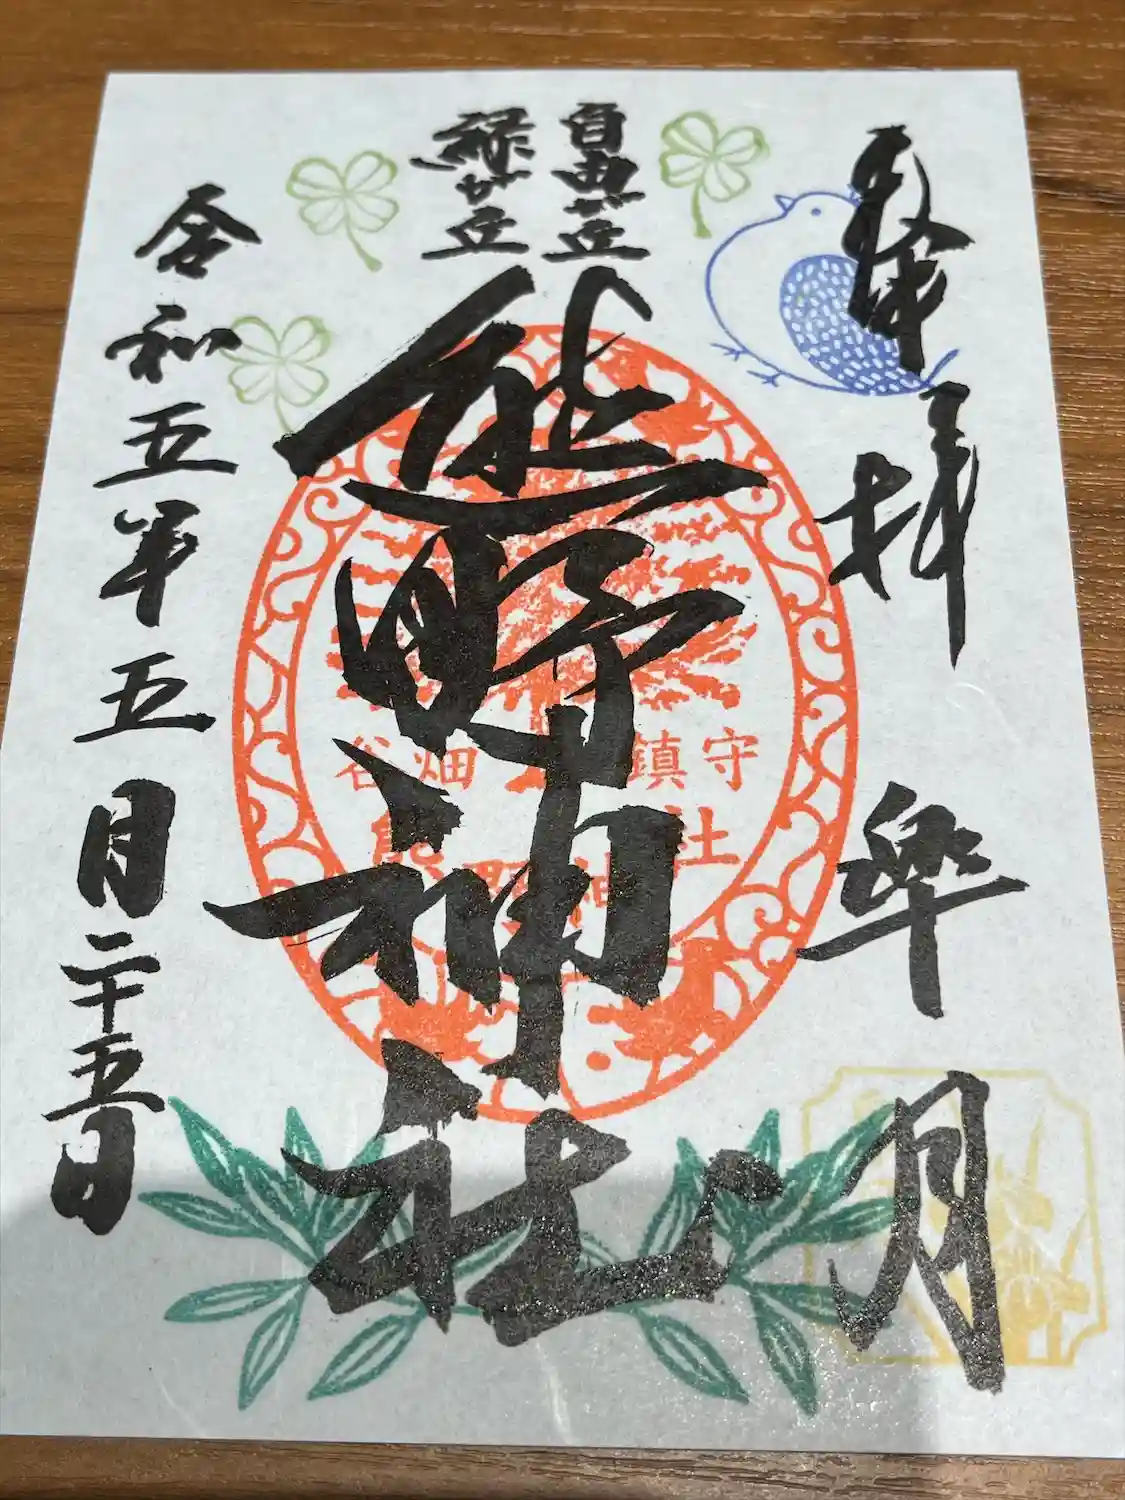 奉拝
皐月
自由が丘
緑が丘
熊野神社
谷畑
鎮守
熊野神社
令和五年五月二十五日